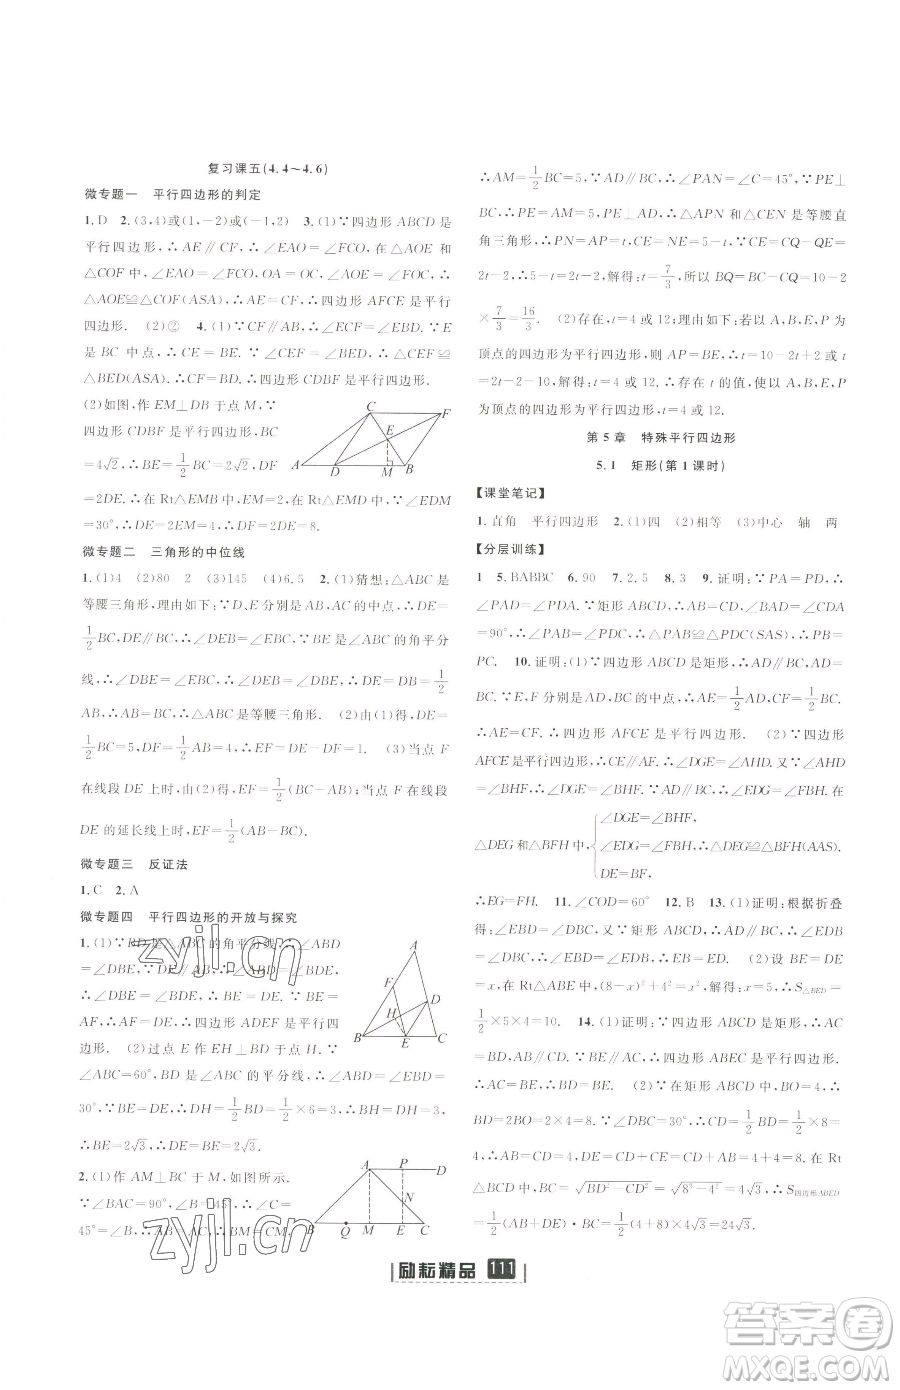 复习课五(4.4～4.6)
微专题一　平行四边形的判定
1.D　2.(3,4)或(1,-2)或(-1,2)　3.(1)∵四边形ABCD是
平行四边形,∴AE∥CF,∴∠EAO=∠FCO,在△AOE和
△COF中,∠EAO=∠FCO,OA=OC,∠AOE=∠COF,∴
△AOE≌△COF(ASA),∴AE=CF,∴四边形AFCE是平行
四边形.　(2)②　4.(1)∵CF∥AB,∴∠ECF=∠EBD.∵E
是BC中点,∴CE=BE.∵∠CEF=∠BED,∴△CEF≌
△BED(ASA).∴CF=BD.∴四边形CDBF是平行四边形.
(2)如图,作EM⊥DB于点M,∵
四边形CDBF是平行四边形,BC
=4√2,∴BE=1/2BC=2√2,DF=
2DE.在Rt△EMB中,EM=2,在Rt△EMD中,∵∠EDM
=30°,∴DE=2EM=4,∴DF=2DE=8.
C F E A D M B
微专题二　三角形的中位线
1.(1)4　(2)80　2　(3)145　(4)6.5　2.(1)猜想:△ABC是
等腰三角形,理由如下:∵D、E分别是AB、AC的中点,∴DE=
1/2BC,DE∥BC,∴∠DEB=∠EBC,∵BE是∠ABC的角平分
线,∴∠DBE=∠EBC,∴∠DBE=∠DEB,∴DE=DB=1/2
AB,∴AB=BC,∴△ABC是等腰三角形.　(2)由(1)得,DE=
1/2BC=5,DF=1/2AB=4,∴EF=DE-DF=1.　(3)当点F
在线段DE上时,由(2)可得,EF=1/2(BC-AB);当点F在线段
DE的延长线上时,EF=1/2(AB-BC).
微专题三　反证法
1.C　2.A
微专题四　平行四边形的开放与探究
1.(1)∵BD是△ABC的角平分线,∴∠ABD
=∠DBE,∵DE∥AB,∴∠ABD=∠BDE,
∴∠DBE=∠BDE,∴BE=DE,∵BE=
AF,∴AF=DE,∴四边形ADEF是平行四
边形.　(2)过点E作EH⊥BD于点H,
∵∠ABC=60°,BD是∠ABC的平分线,∴∠ABD=∠EBD=
30°,∴∠BDE=30°,∴DH=1/2BD=1/2×6=3,∵BH=DH=3,
∴BE=2√3,∴DE=BE=2√3.
A F D H B E C
2.(1)作AM⊥BC于M,如图所示.
∵∠BAC=90°,∠B=45°,∴∠C=
45°=∠B,∴AB=AC,∴BM=CM,
A P D N B Q M E C
∴AM=1/2BC=5,∵AD∥BC,∴∠PAN=∠C=45°,∵PE⊥
BC,∴PE=AM=5,PE⊥AD,∴△APN和△CEN是等腰直
角三角形,∴PN=AP=t,CE=NE=5-t,∵CE=CQ-QE=
2t-2,∴5-t=2t-2,解得:t=7/3,所以BQ=BC-CQ=10-2
×7/3=16/3.　(2)存在,t=4或12;理由如下:若以A、B、E、P为
顶点的四边形为平行四边形,则AP=BE,∴t=10-2t+2或t=
2t-2-10,解得:t=4或12,∴存在t的值,使以A、B、E、P
为顶点的四边形为平行四边形,t=4或12.
第5章　特殊平行四边形
5.1　矩形(第1课时)
【课堂笔记】
1.直角　平行四边形　2.(1)四　(2)相等　(3)中心　轴　两
【分层训练】
1—5.BABBC　6.90　7.2.5　8.3　9.证明:∵PA=PD,∴
∠PAD=∠PDA.∵矩形ABCD,∴AB=CD,∠BAD=∠CDA
=90°,∴∠PAB=∠PDC,∴△PAB≌△PDC(SAS),∴PB=
PC.　10.证明:(1)∵四边形ABCD是矩形,∴AD∥BC,AD=
BC.∵E、F分别是AD、BC的中点,∴AE=1/2AD,CF=1/2BC.
∴AE=CF.∴四边形AFCE是平行四边形.　(2)∵四边形
AFCE是平行四边形,∴CE∥AF.∴∠DGE=∠AHD.又∵∠AHD
=∠BHF,∴∠DGE=∠BHF.∵AD∥BC,∴∠EDG=∠FBH.在
△DEG和△BFH中{∠DGE=∠BHF, ∠EDG=∠FBH, DE=BF, ∴△DEG≌△BFH(AAS).
∴EG=FH.　11.∠COD=60°　12.B　13.(1)证明:根据折叠
得:∠EBD=∠CBD,∵矩形ABCD,∴AD∥BC,∴∠EDB=
∠CBD,∴∠EBD=∠EDB,∴EB=ED.　(2)设BE=DE
=x,在Rt△ABE中,(8-x)²+4²=x²,解得:x=5,∴S△BED=
1/2×5×4=10.　14.(1)证明:∵四边形ABCD是矩形,∴AC
=BD,AB∥CD.又∵BE∥AC,∴四边形ABEC是平行四边形.
∴BE=AC,∴BD=BE.　(2)∵在矩形ABCD中,BO=4,∴
BD=2BO=2×4=8.∵∠DBC=30°,∴CD=1/2BD=1/2×8=
4,∴AB=CD=4,DE=CD+CE=CD+AB=4+4=8.在Rt
△BCD中,BC=√(BD²-CD²)=√(8²-4²)=4√3,∴S四边形ABED
=1/2(AB+DE)·BC=1/2(4+8)×4√3=24√3.
励耘精品　111
zyjl.cn
zyjl.cn
答案圈
MXQE.COM